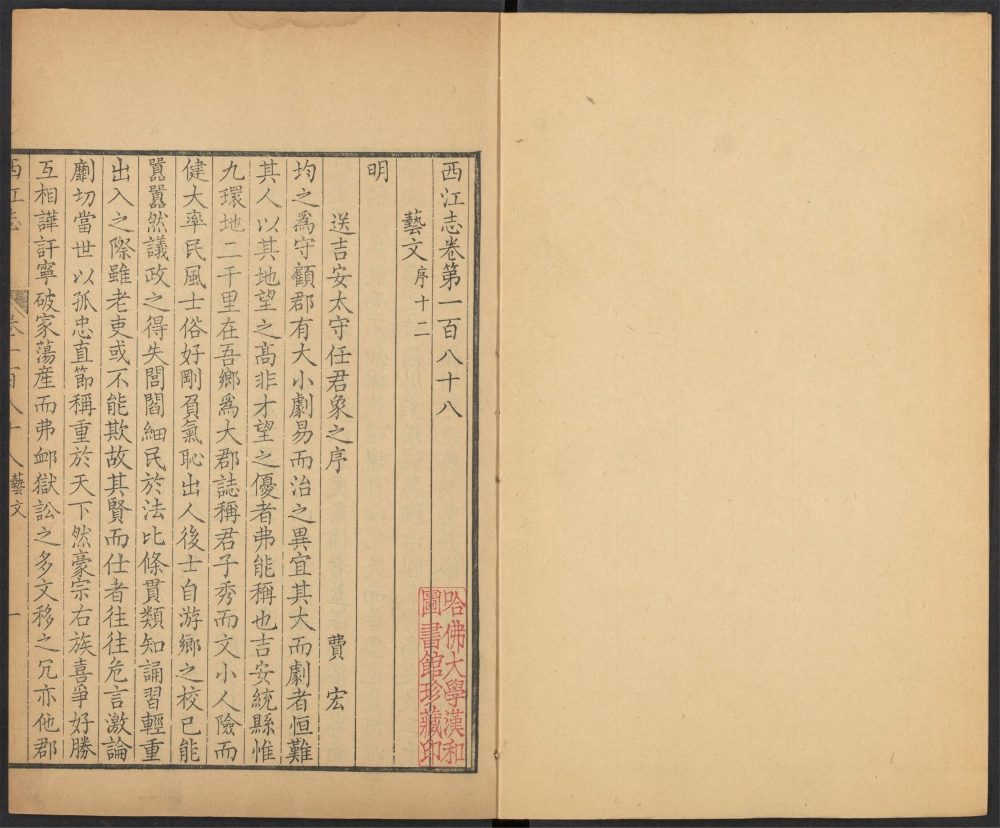 西江志卷第一百八十八
藝文序十二
明
送吉安太守任君象之序
費宏
均之爲守顧郡有大小劇易而治之異宜其大而劇者恒難
其人以其地望之高非才望之優者弗能稱也吉安統縣惟
九環地二千里在吾鄉爲大郡誌稱君子秀而文小人險而
健大率民風士俗好剛負氣恥出人後士自游鄉之校已能
囂囂然議政之得失閭閻細民於法比條貫類知誦習輕重
出入之際雖老吏或不能欺故其賢而仕者往往危言激論
劘切當世以孤忠直節稱重於天下然豪宗右族喜爭好勝
互相譁訐寧破家蕩産而弗衈獄訟之多文移之冗亦他郡
西江志
卷一百八十八藝文
一
哈佛大學漢和
圖書館珍藏印